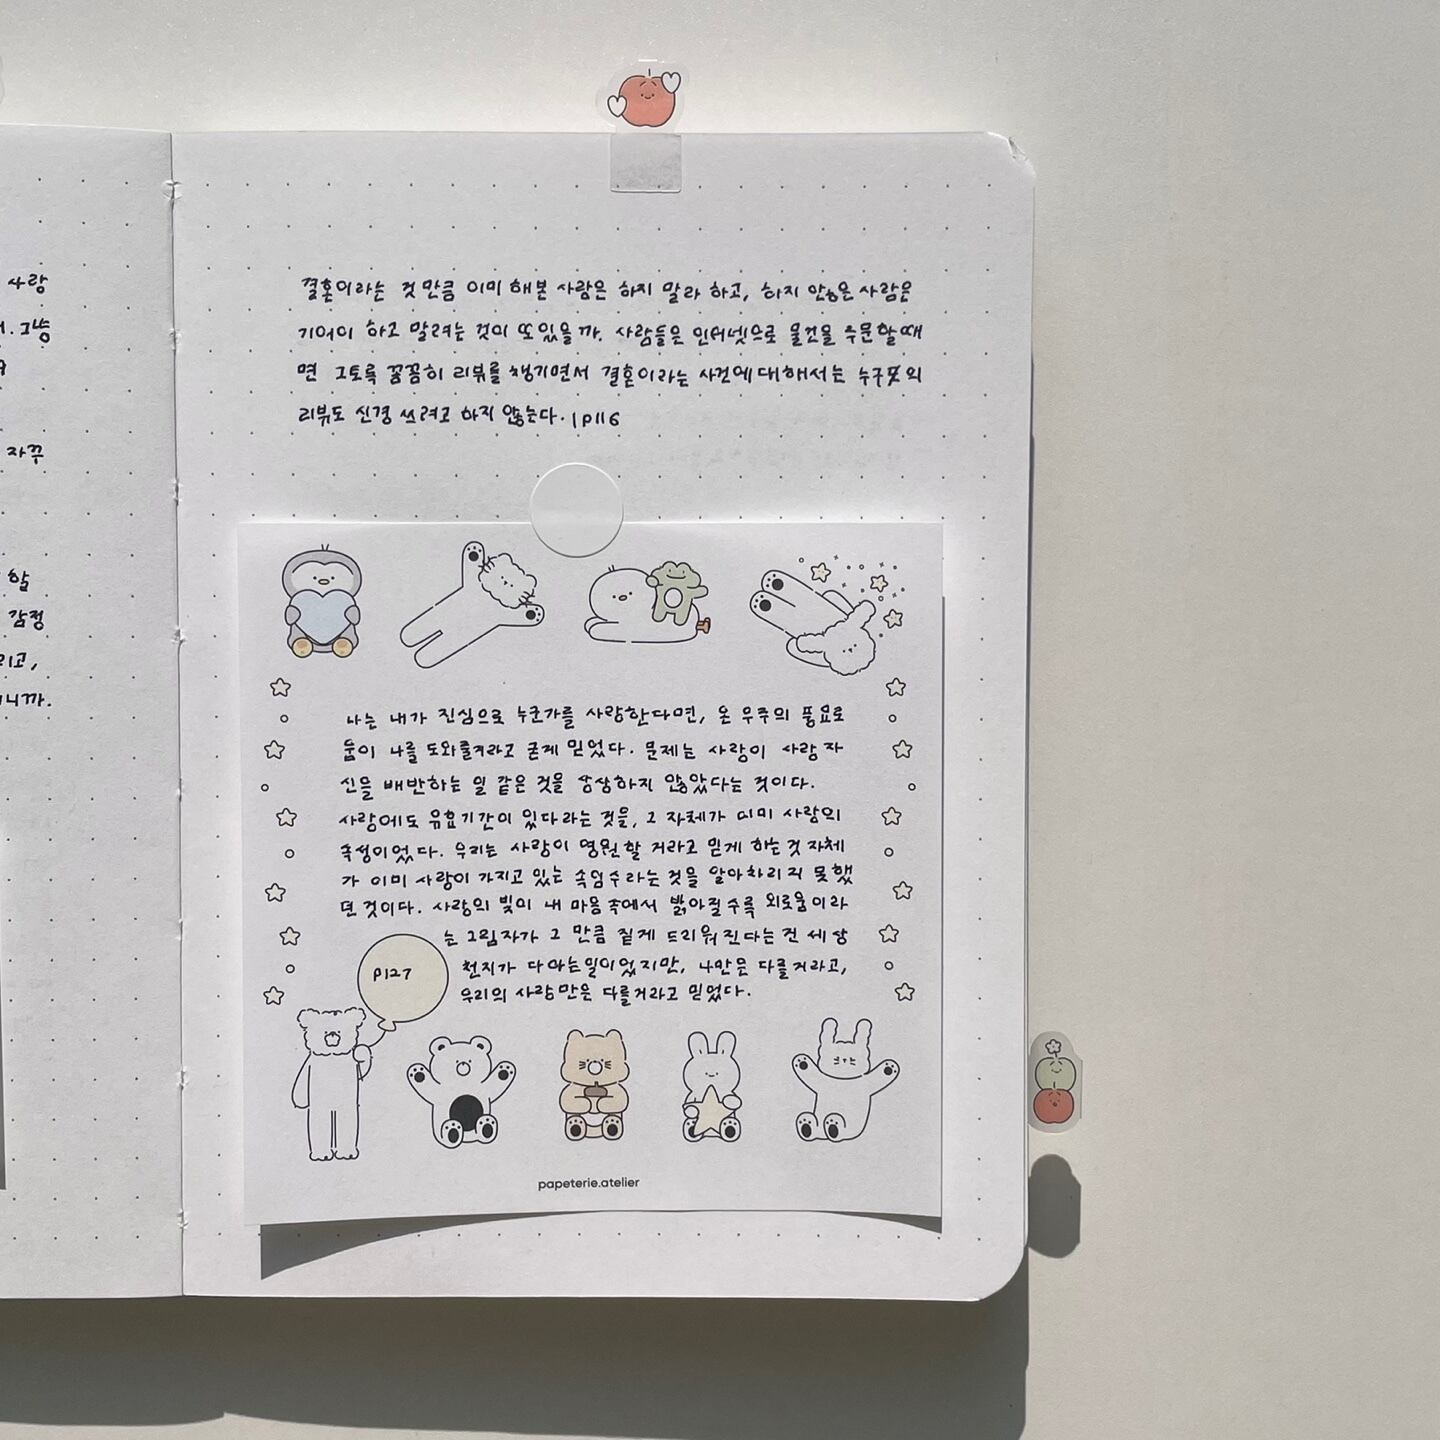 사랑
자꾸
할
감정
리고,
니까.
결혼이라는 것 만큼 이미 해본 사람은 하지 말라 하고, 하지 안않은 사람은
기어이 하고 말려는 것이 또 있을까. 사람들은 인터넷으로 물건을 주문할 때
면 그토록 꼼꼼히 리뷰를 챙기면서 결혼이라는 사건에 대해서는 누구의
리뷰도 신경 쓰려고 하지 않는다. | p116
나는 내가 진심으로 누군가를 사랑한다면, 온 우주의 풍요로
움이 나를 도와줄거라고 굳게 믿었다. 문제는 사랑이 사랑 자
신을 배반하는 일 같은 것을 상상하지 않았다는 것이다.
사랑에도 유효기간이 있다라는 것을, 그 자체가 이미 사랑의
속성이었다. 우리는 사랑이 영원할 거라고 믿게 하는 것 자체
가 이미 사랑이 가지고 있는 속임수라는 것을 알아차리지 못했
던 것이다. 사랑의 빛이 내 마음 속에서 밝아질수록 외로움이라
는 그림자가 그 만큼 짙게 드리워진다는 건 세상
천지가 다 아는 일이었지만, 나만은 다를거라고,
우리의 사랑만은 다를거라고 믿었다.
p127
papeterie.atelier